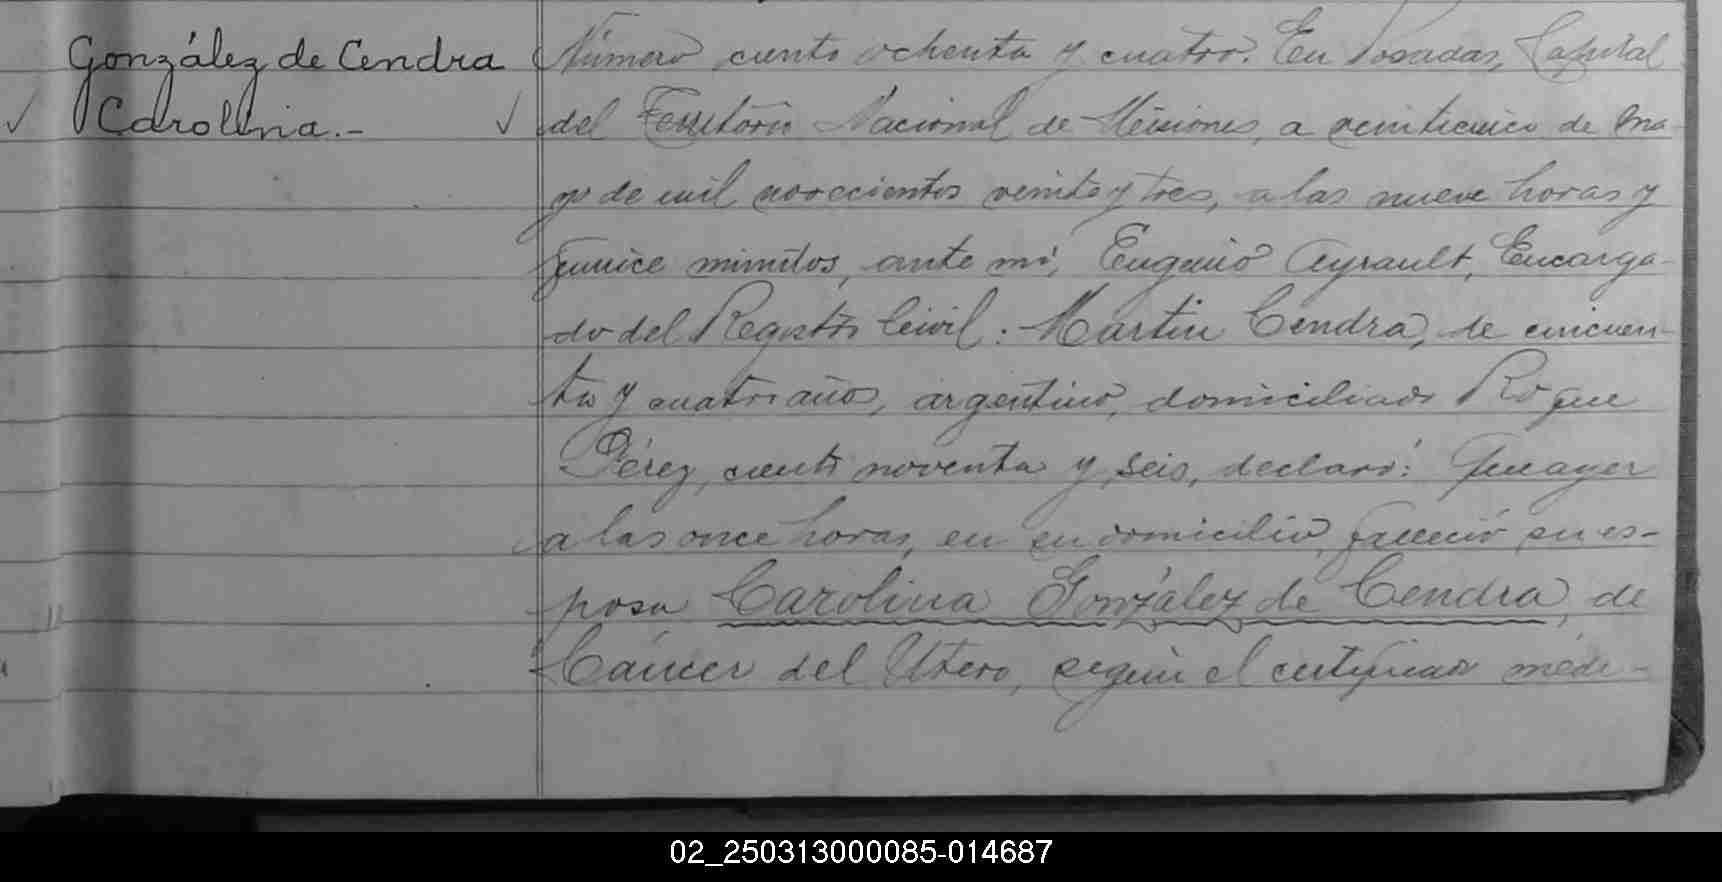 González de Cendra
Carolina.-
Número ciento ochenta y cuatro. En Posadas, Capital
del Territorio Nacional de Misiones, a veinticinco de Ma-
yo de mil novecientos veinte y tres, a las nueve horas y
quince minutos, ante mí, Eugenio Ayrault, Encarga-
do del Registro Civil: Martin Cendra, de cincuen-
ta y cuatro años, argentino, domiciliado Roque
Pérez, ciento noventa y seis, declaró: Que ayer
a las once horas, en su domicilio, falleció su es-
posa Carolina González de Cendra, de
Cáncer del Utero, según el certificado médi-
02_250313000085-014687